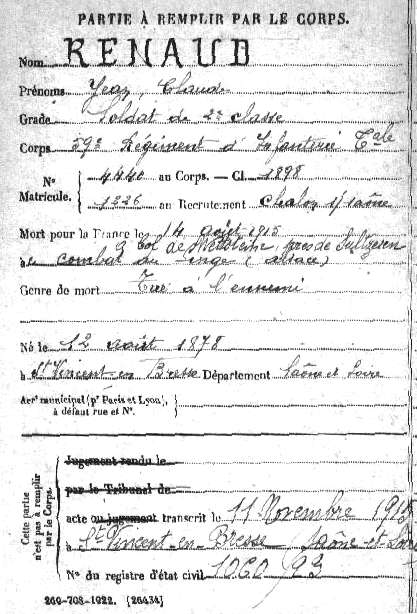 PARTIE À REMPLIR PAR LE CORPS.
Nom RENAUD
Prénoms Jean, Claude
Grade Soldat de 2e classe
Corps 59e Régiment d'Infanterie Tale
No Matricule. 4440 au Corps. — Cl. 1898
1226 au Recrutement Chalon s/ Saône
Mort pour la France le 14 août 1915
à Col de Wettstein, près de Sultzeren
le combat du Linge (alsace)
Genre de mort Tué à l'ennemi
Né le 12 août 1878
à St Vincent en Bresse Département Saône et Loire
Arrt municipal (pr Paris et Lyon), à défaut rue et No.
Cette partie n'est pas à remplir par le Corps.
Jugement rendu le
par le Tribunal de
acte ou jugement transcrit le 11 Novembre
à St Vincent-en-Bresse Saône-et-Loire
No du registre d'état civil
269-708-1922. [26434]